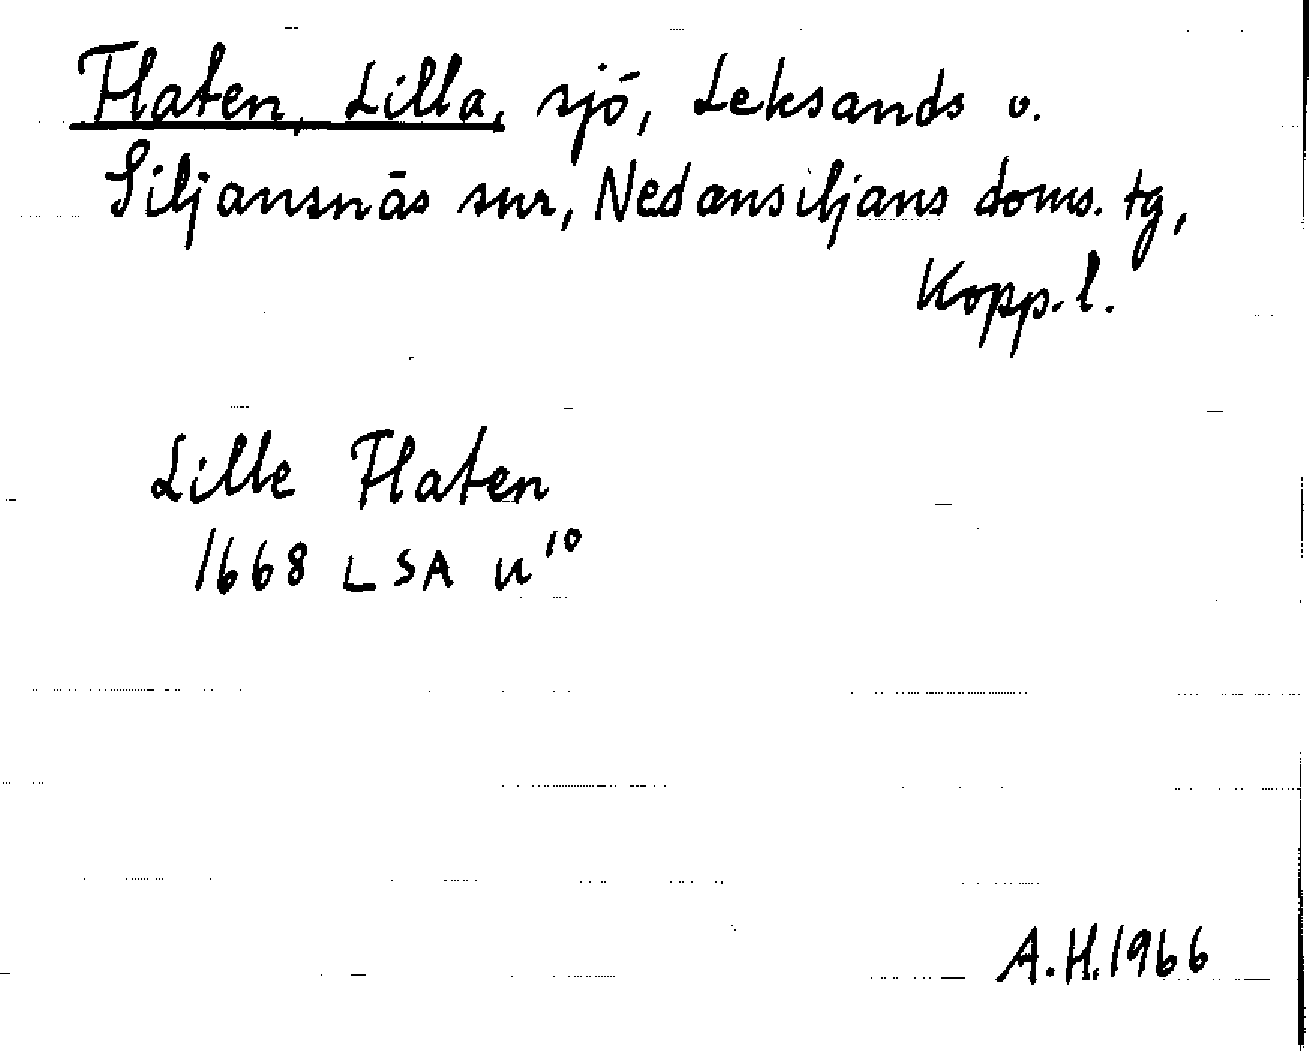 Flaten, Lilla, sjö, Leksands o.
Siljansnäs snr, Nedansiljans doms. tg,
Kopp. l.
Lille Flaten
1668 LSA u¹⁰
A.H. 1966